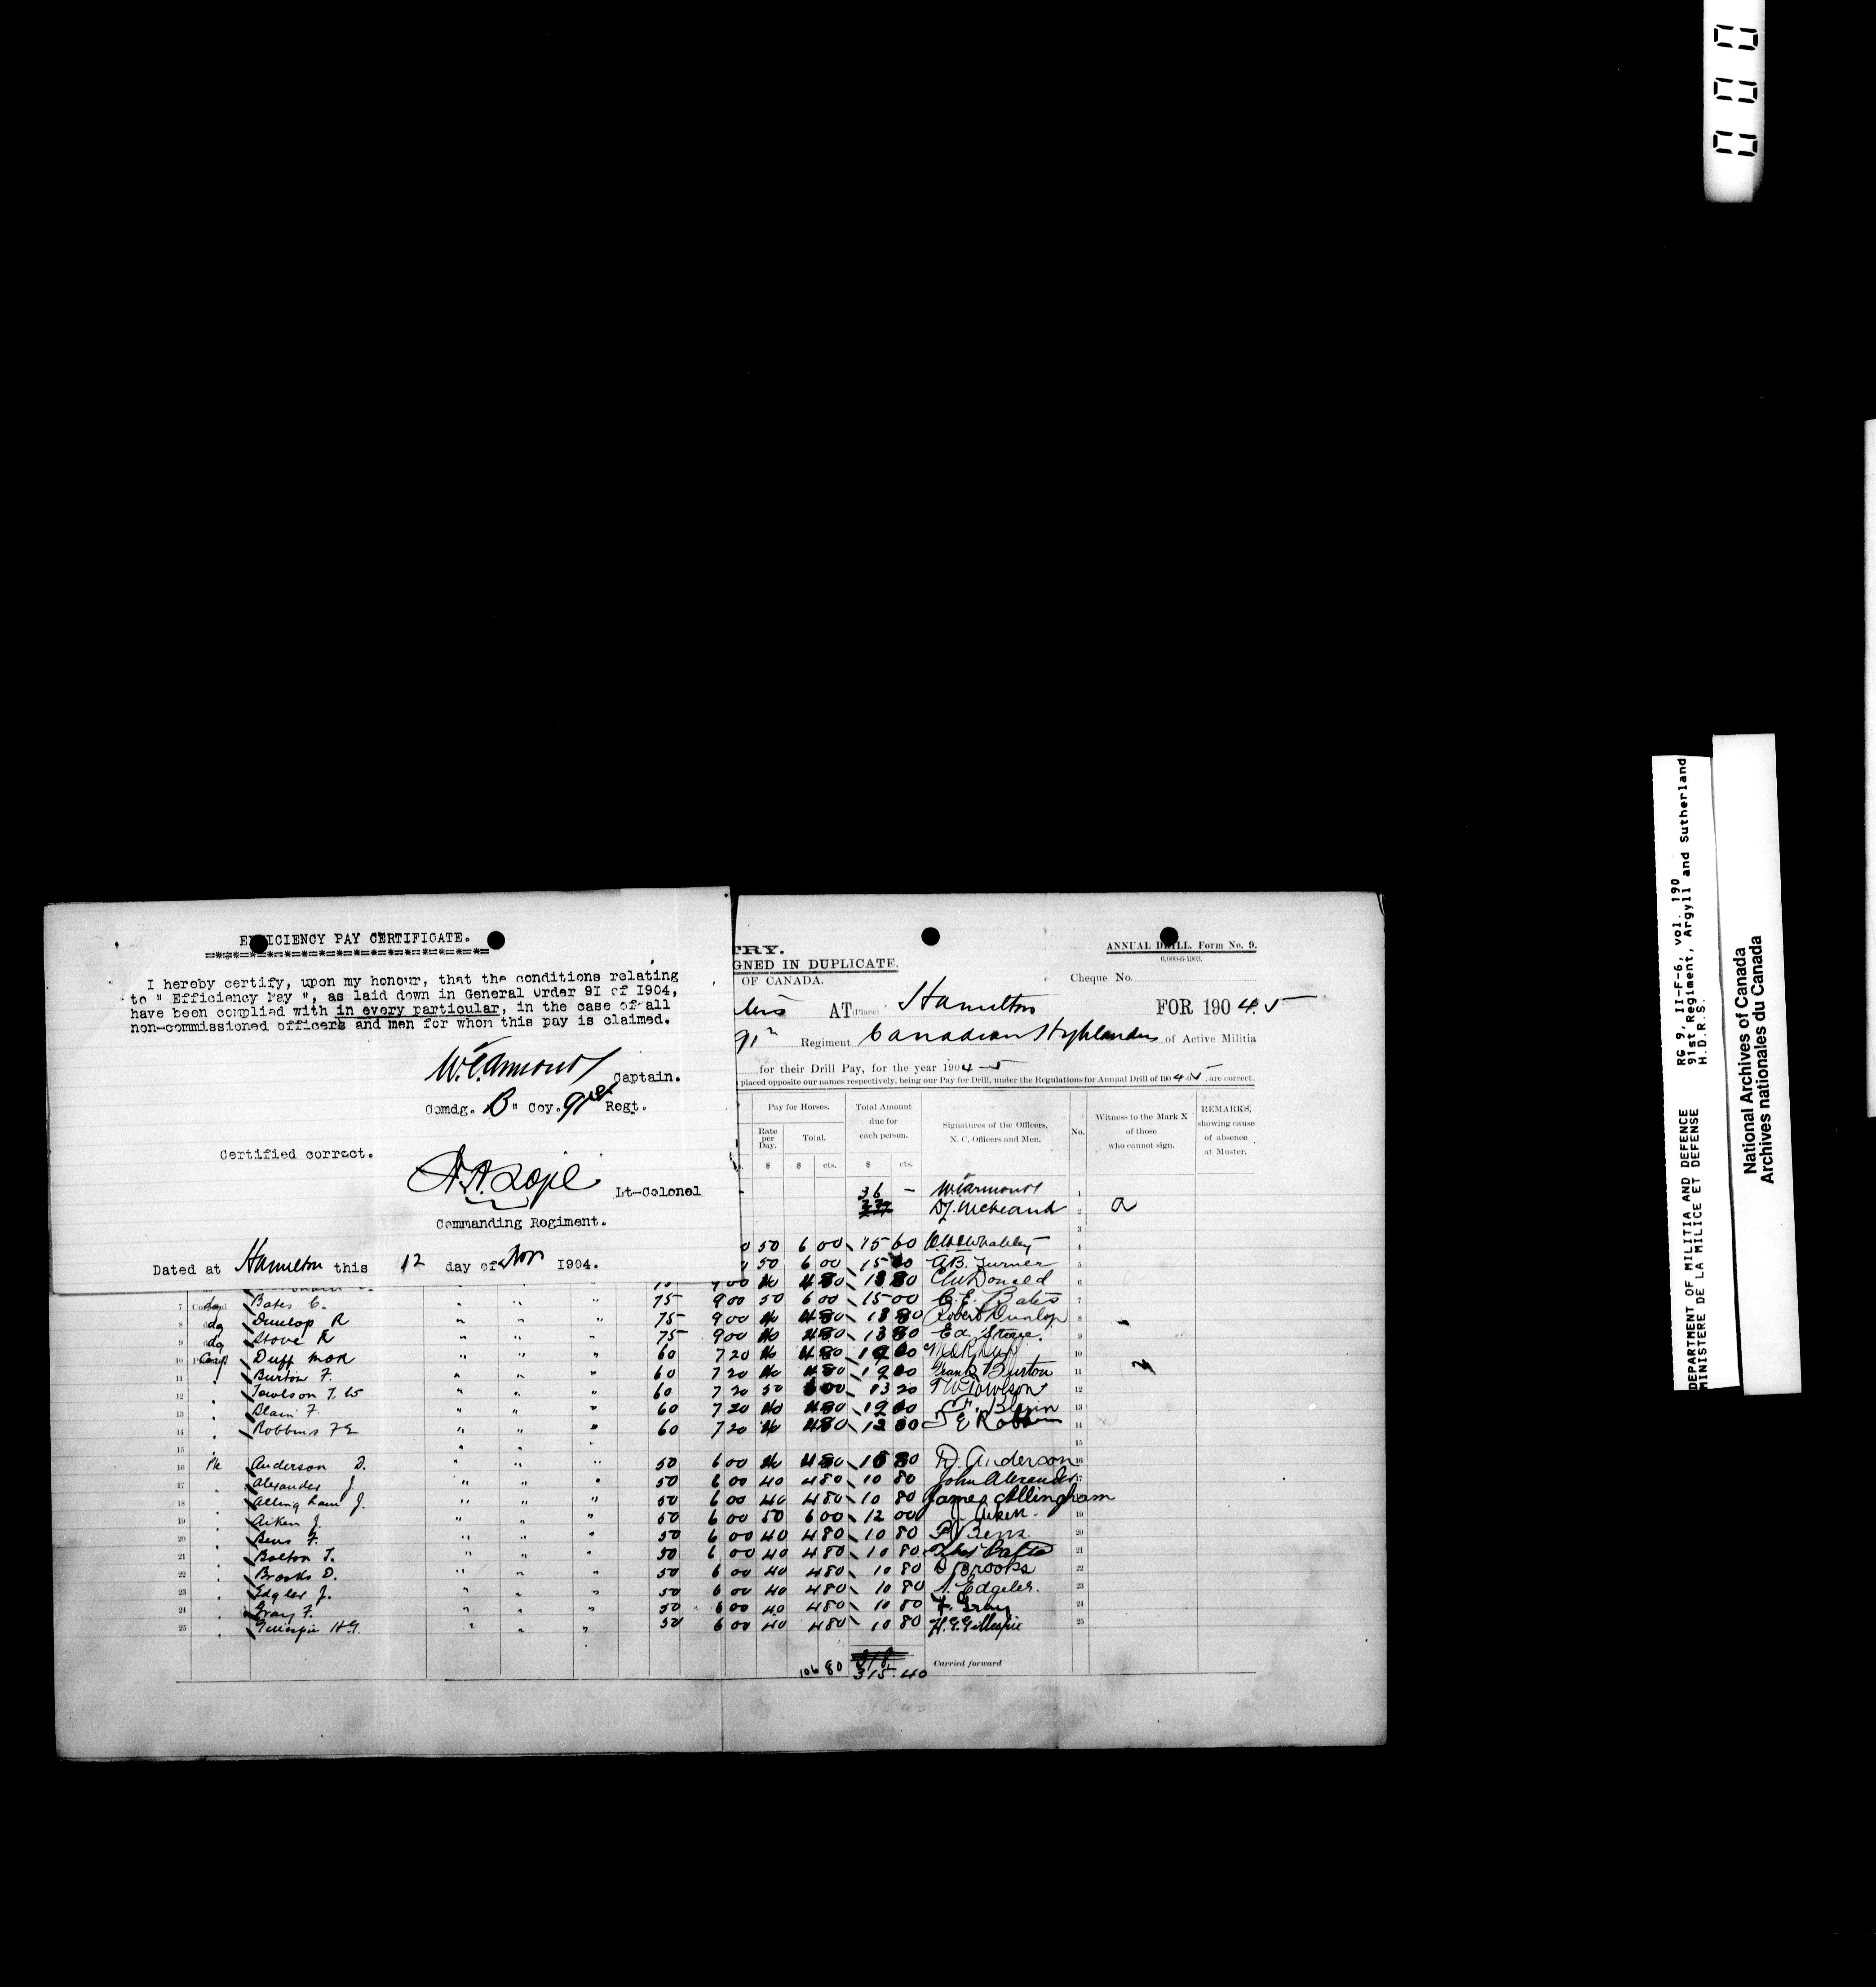 EFFICIENCY PAY CERTIFICATE.
I hereby certify, upon my honour, that the conditions relating
to " Efficiency Pay ", as laid down in General Order 9I of I904,
have been complied with in every particular, in the case of all
non-commissioned officers and men for whom this pay is claimed.
Captain.
Comdg. B" Coy. 91st Regt.
Certified correct.
Lt-Colonel
Commanding Regiment.
Dated at Hamilton this 12 day of Nov I904.
TRY.
GNED IN DUPLICATE.
OF CANADA.
ANNUAL DRILL. Form No. 9.
6,000-6-1903.
Cheque No.
AT (Place) Hamilton FOR 1904-5
91st Regiment Canadian Highlanders of Active Militia
for their Drill Pay, for the year 1904-5
placed opposite our names respectively, being our Pay for Drill, under the Regulations for Annual Drill of 1904-5, are correct.
Pay for Horses. Total Amount due for each person. Signatures of the Officers, N. C. Officers and Men. No. Witness to the Mark X of those who cannot sign. REMARKS, showing cause of absence at Muster.
Rate per Day. Total.
$ $ cts. $ cts.
36 - 1
D.J. McKeand 2 a
3
50 6 00 15 60 Whatley 4
50 6 00 15 A.B. Turner 5
9 00 40 4 80 13 80 McDonald 6
7 do Bates C. " " " 75 9 00 50 6 00 15 00 C.E. Bates 7
8 do Dunlop R " " " 75 9 00 40 4 80 13 80 Robert Dunlop 8
9 do Stove R " " " 75 9 00 40 4 80 13 80 Ed. Stove 9
10 Corp Duff " " " 60 7 20 40 4 80 12 00 10
11 " Burton F. " " " 60 7 20 40 4 80 12 00 Frank Burton 11
12 " Towlson T. W " " " 60 7 20 50 6 00 13 20 T W Towlson 12
13 " Blain F. " " " 60 7 20 40 4 80 12 00 F. Blain 13
14 " Robbins F E " " " 60 7 20 40 4 80 12 00 F E Robbins 14
15 " " " " 15
16 Pte Anderson D. " " " 50 6 00 40 4 80 10 80 D. Anderson 16
17 " Alexander J " " " 50 6 00 40 4 80 10 80 John Alexander 17
18 " Allingham J. " " " 50 6 00 40 4 80 10 80 James Allingham
19 " Aiken J. " " " 50 6 00 50 6 00 12 00 J. Aiken. 19
20 " Bens F. " " " 50 6 00 40 4 80 10 80 F. Bens 20
21 " Bolton T. " " " 50 6 00 40 4 80 10 80 21
22 " Brooks D. " " " 50 6 00 40 4 80 10 80 D Brooks 22
23 " Edgler J. " " " 50 6 00 40 4 80 10 80 Edgeler. 23
24 " Gray F. " " " 50 6 00 40 4 80 10 80 F. Gray 24
25 " Gillespie H.G. " " " 50 6 00 40 4 80 10 80 H.G. Gillespie 25
106 80 315.40 Carried forward
0 0 0
DEPARTMENT OF MILITIA AND DEFENCE RG 9, II-F-6, vol. 190
MINISTERE DE LA MILICE ET DEFENSE 91st Regiment, Argyll and Sutherland
H.D.R.S.
National Archives of Canada
Archives nationales du Canada